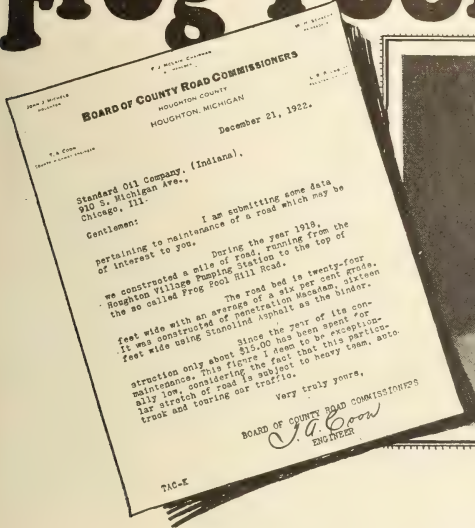 Frog Poo
F J McLAIN CHAIRMAN
MEMBER
JOHN J MICHELS
BOARD OF COUNTY ROAD COMMISSIONERS
HOUGHTON COUNTY
HOUGHTON, MICHIGAN
T. A. COON
December 21, 1922.
Standard Oil Company. (Indiana),
910 S. Michigan Ave.,
Chicago, Ill.
Gentlemen:
I am submitting some data
pertaining to maintenance of a road which may be
of interest to you.
During the year 1918,
we constructed a mile of road, running from the
Houghton Village Pumping Station to the top of
the so called Frog Pool Hill Road.
The road bed is twenty-four
feet wide with an average of a six per cent grade.
It was constructed of penetration Macadam, sixteen
feet wide using Stanolind Asphalt as the binder.
Since the year of its con-
struction only about $15.00 has been spent for
maintenance. This figure I deem to be exception-
ally low, considering the fact that this particu-
lar stretch of road is subject to heavy team, auto-
truck and touring car traffic.
Very truly yours,
BOARD OF COUNTY ROAD COMMISSIONERS
T.A. Coon
ENGINEER
TAC-K